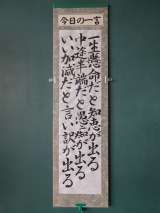 今日の一言
一生懸命だと知恵が出る
中途半端だと愚知が出る
いい加減だと言い訳が出る